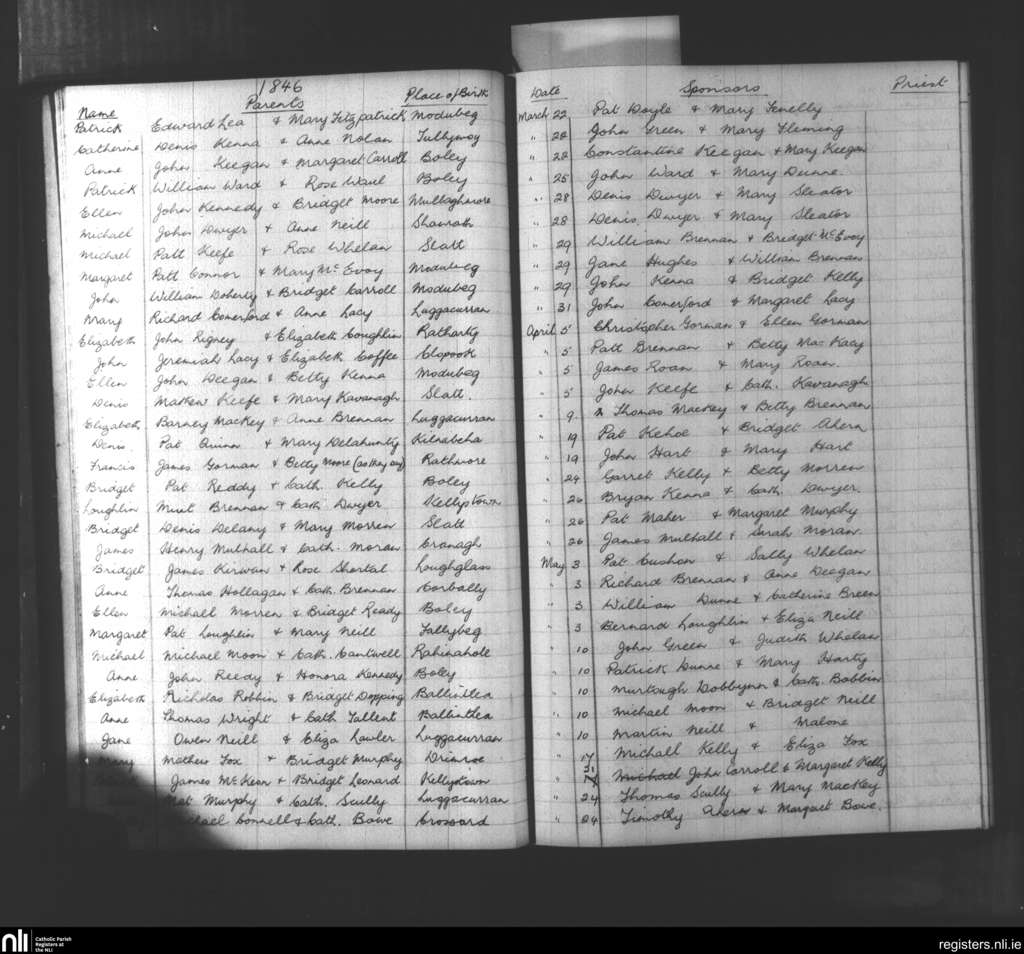 1846
Name Parents Place of Birth
Patrick Edward Lea & Mary Fitzpatrick Modubeg
Catherine Denis Kenna & Anne Nolan Tullymoy
Anne John Keegan & Margaret Carroll Boley
Patrick William Ward & Rose Waul Boley
Ellen John Kennedy & Bridget Moore Mullaghmore
Michael John Dwyer & Anne Neill Shanrath
Michael Patt Keefe & Rose Whelan Slatt
Margaret Patt Connor & Mary McEvoy Modubeg
John William Doherty & Bridget Carroll Modubeg
Mary Richard Comerford & Anne Lacy Luggacurran
Elizabeth John Rigney & Elizabeth Coughlin Rathartg
John Jeremiah Lacy & Elizabeth Coffee Clopook
Ellen John Deegan & Betty Kenna Modubeg
Denis Mathew Keefe & Mary Kavanagh Slatt.
Elizabeth Barney Mackey & Anne Brennan Luggacurran
Denis Pat Quinn & Mary Delahunty Kilnabeha
Francis James Gorman & Betty Moore (as they say) Rathmore
Bridget Pat Reddy & Cath. Kelly Boley
Loughlin Murt Brennan & Cath Dwyer Kellystown
Bridget Denis Delany & Mary Morren Slatt
James Henry Mulhall & Cath. Moran Cranagh
Bridget James Kirwan & Rose Shortal Loughglass
Anne Thomas Hollagan & Cath. Brennan Corbally
Ellen Michall Morren & Bridget Ready Boley
Margaret Pat Loughlin & Mary Neill Tallybeg
Michael Michael Moon & Cath. Cantwell Rahinahole
Anne John Reedy & Honora Kennedy Boley
Elizabeth Nicholas Robbin & Bridget Dopping Ballintlea
Anne Thomas Wright & Cath Tallent Ballintlea
Jane Owen Neill & Eliza Lawler Luggacurran
Mary Mathew Fox & Bridget Murphy Drimroe
James McKeon & Bridget Leonard Kellystown
Mat Murphy & Cath. Scully Luggacurran
Michael Connell & Cath. Bowe Crossard
Date Sponsors Priest
March 22 Pat Doyle & Mary Fenelly
" 22 John Green & Mary Fleming
" 22 Constantine Keegan & Mary Keegan
" 25 John Ward & Mary Dunne.
" 28 Denis Dwyer & Mary Sleator
" 28 Denis Dwyer & Mary Sleator
" 29 William Brennan & Bredget McEvoy
" 29 Jane Hughes & William Brennan
" 29 John Kenna & Bridget Kelly
" 31 John Comerford & Margaret Lacy
April 5 Christopher Gorman & Ellen Gorman
" 5 Patt Brennan & Betty Mac Kacy
" 5 James Roan & Mary Roan.
" 5 John Keefe & Cath. Kavanagh
" 9 Thomas Mackey & Betty Brennan
" 19 Pat Kehoe & Bridget Ahern
" 19 John Hart & Mary Hart
" 24 Garret Kelly & Betty Morren
" 26 Bryan Kenna & Cath. Dwyer.
" 26 Pat Maher & Margaret Murphy
" 26 James Mulhall & Sarah Moran.
May 3 Pat Cushon & Sally Whelan
" 3 Richard Brennan & Anne Deegan
" 3 William Dunne & Catherine Breen
" 3 Bernard Loughlin & Eliza Neill
" 10 John Green & Judith Whelan
" 10 Patrick Dunne & Mary Harty
" 10 Murtough Dobbynn & Cath. Bobbin
" 10 Michael Moon & Bridget Neill
" 10 Martin Neill & Malone
" 17 Michall Kelly & Eliza Fox
31 Michael John Carroll & Margaret Kelly
" 24 Thomas Scully & Mary Mackey
" 24 Timothy Ahern & Margaret Bowe.
nli Catholic Parish
Registers at
the NLI
registers.nli.ie